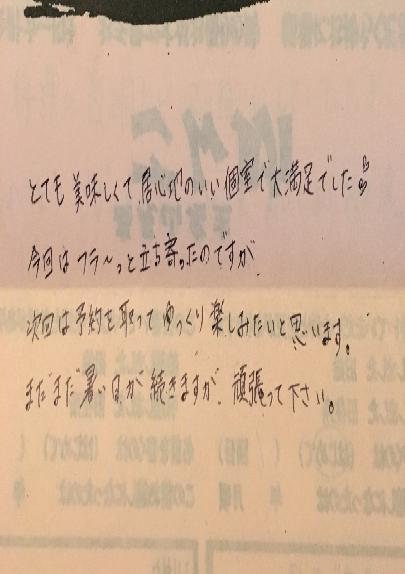 とても美味しくて居心地のいい個室で大満足でした
今回はフラ〜っと立ち寄ったのですが
次回は予約を取ってゆっくり楽しみたいと思います。
まだまだ暑い日が続きますが、頑張って下さい。